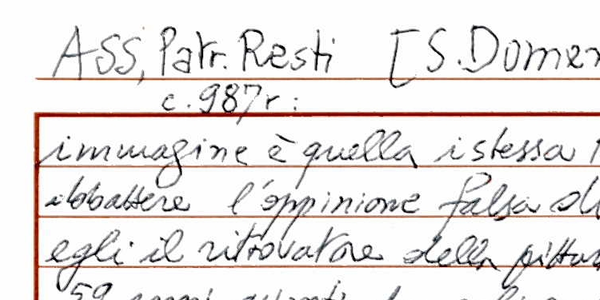 ASS, Patr. Resti [S. Domen
c. 987r:
immagine è quella istessa
abbattere l'oppinione falsa di
egli il ritrovatore della pittu
59 anni avanti